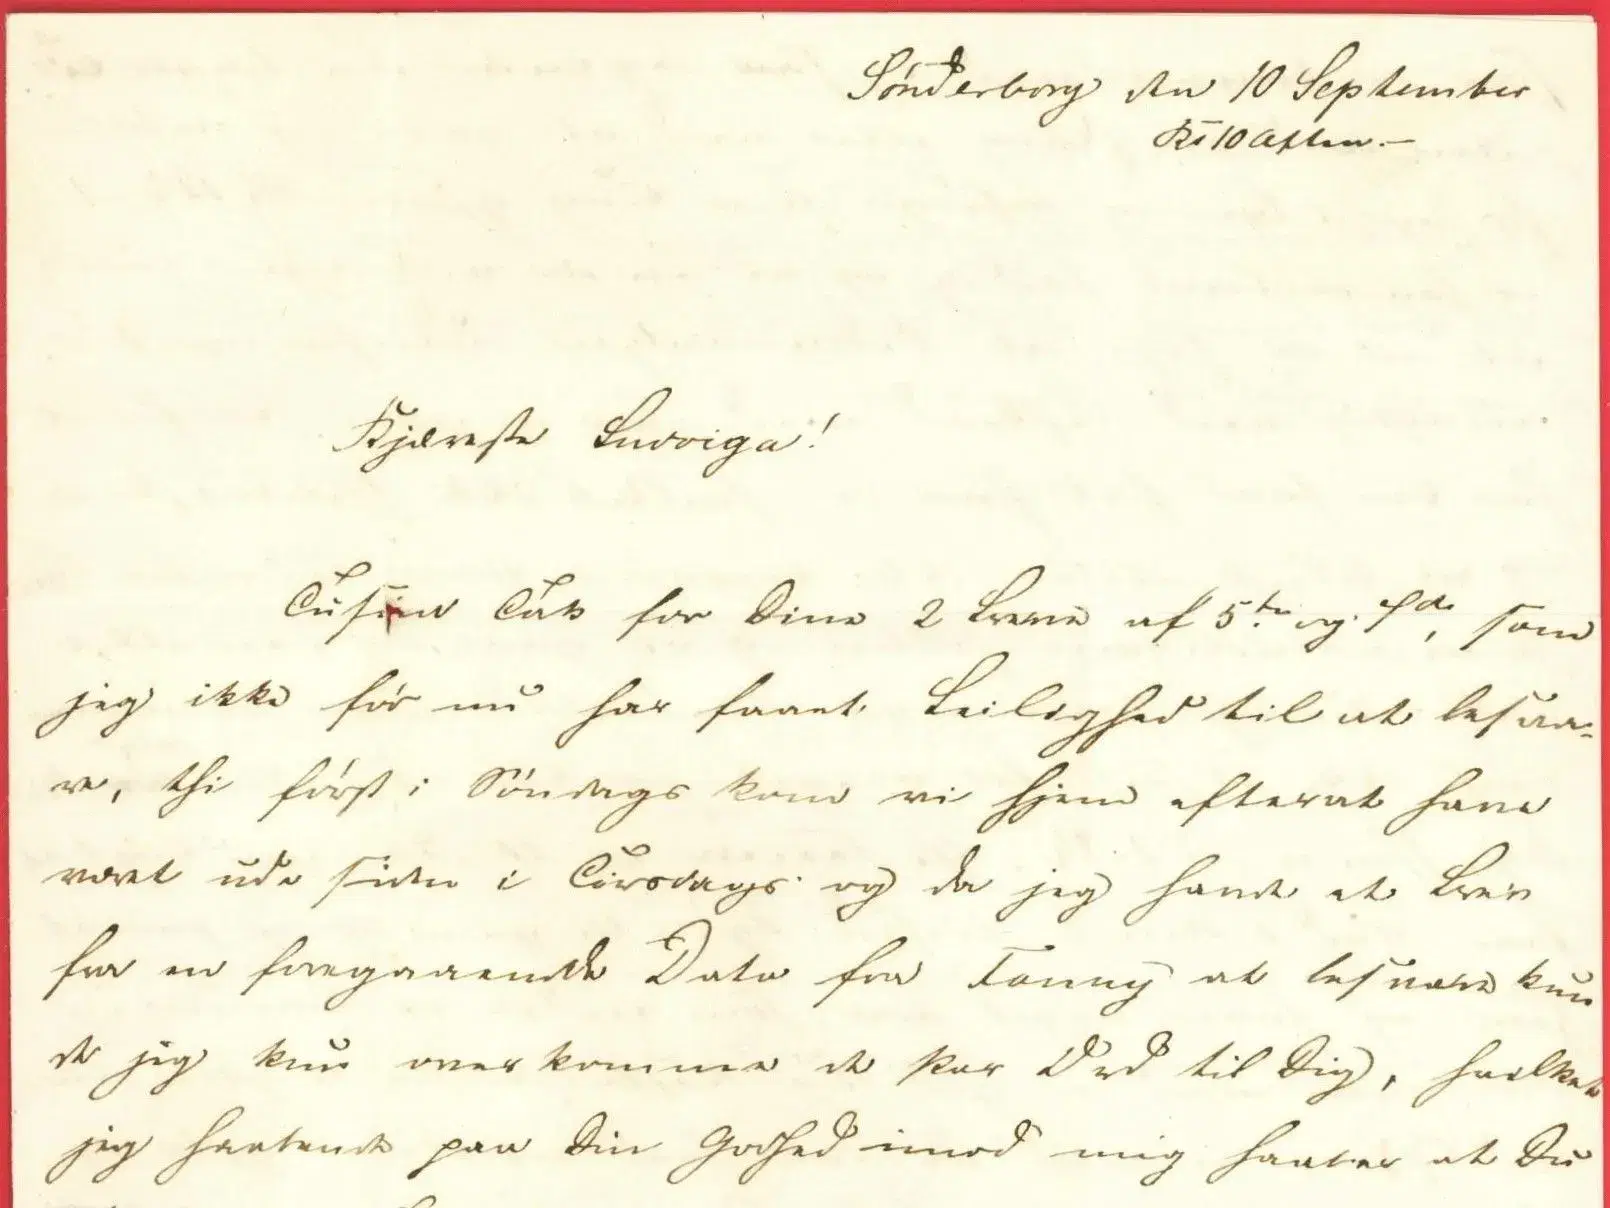 Sønderborg den 10 September
Kl 10 Aften.—
Kjæreste Ludviga!
Tusind Tak for Dine 2 Breve af 5te og, som
jeg ikke før nu har faaet Leilighed til at besva=
re, thi først i Søndags kom vi hjem efterat have
været ude siden i Tirsdags og da jeg havde et Brev
fra en foregaaende Dato fra Fanny at besvare kun
de jeg kun overkomme et Par Ord til Dig, hvilket
jeg haabende paa Din Godhed imod mig haaber at Du